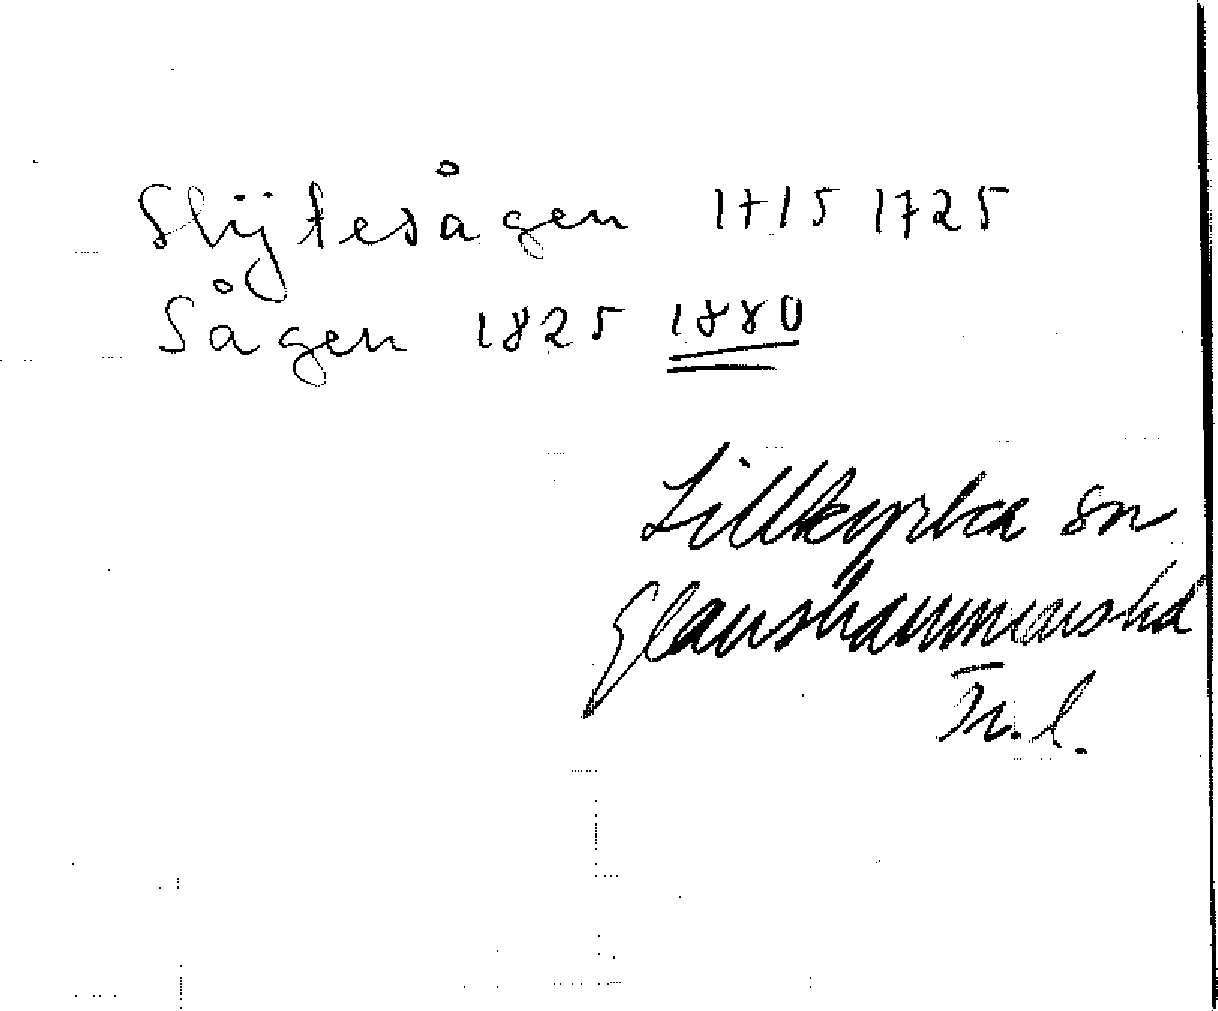 Slÿtesågen 1715 1725
Sågen 1825 1880
Lillkyrka sn
Glanshammars hd
Ör. l.